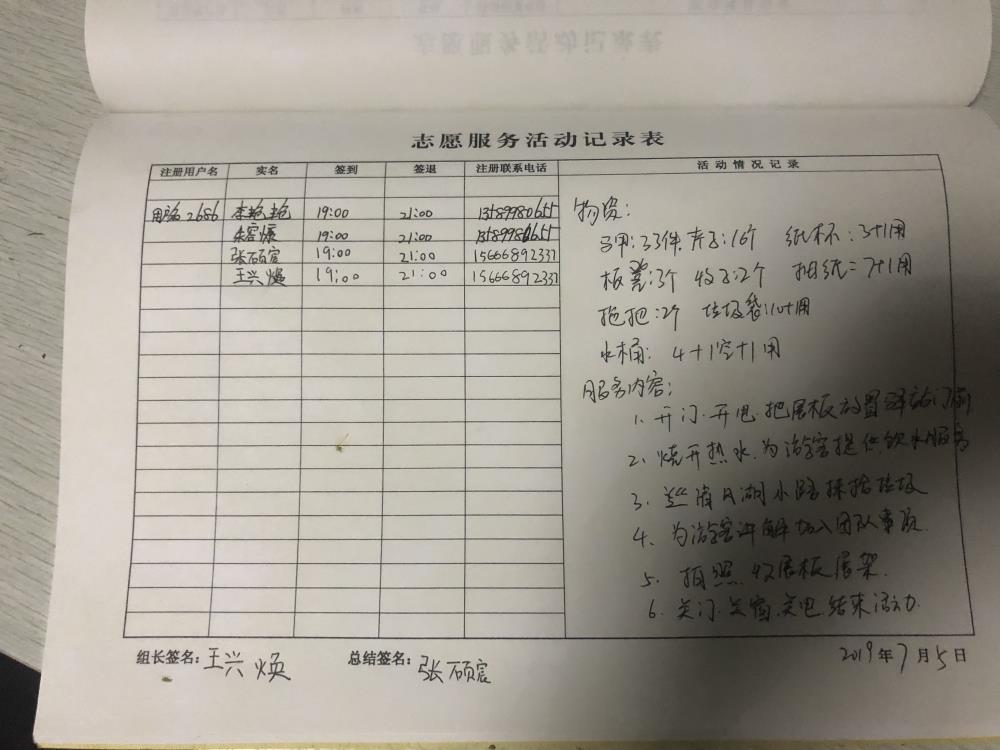 志愿服务活动记录表
注册用户名 实名 签到 签退 注册联系电话 活动情况记录
用户名2686 李艳艳 19:00 21:00 13589980655
朱容慷 19:00 21:00 13589980655
张硕宸 19:00 21:00 15666892337
王兴焕 19:00 21:00 15666892337
物资:
马甲:33件 夹子:16个 纸杯:3+1用
板凳:3个 收子:2个 抽纸:7+1用
拖把:2个 垃圾袋:10+1用
水桶: 4+1空+1用
服务内容:
1、开门.开电.把展板放置驿站门前
2、烧开热水.为游客提供饮水服务
3、月湖小路 捡拾垃圾
4、为游客讲解加入团队事项.
5、拍照.收展板展架.
6、关门.关窗.关电结束活动.
组长签名:王兴焕 总结签名:张硕宸 2019年7月5日